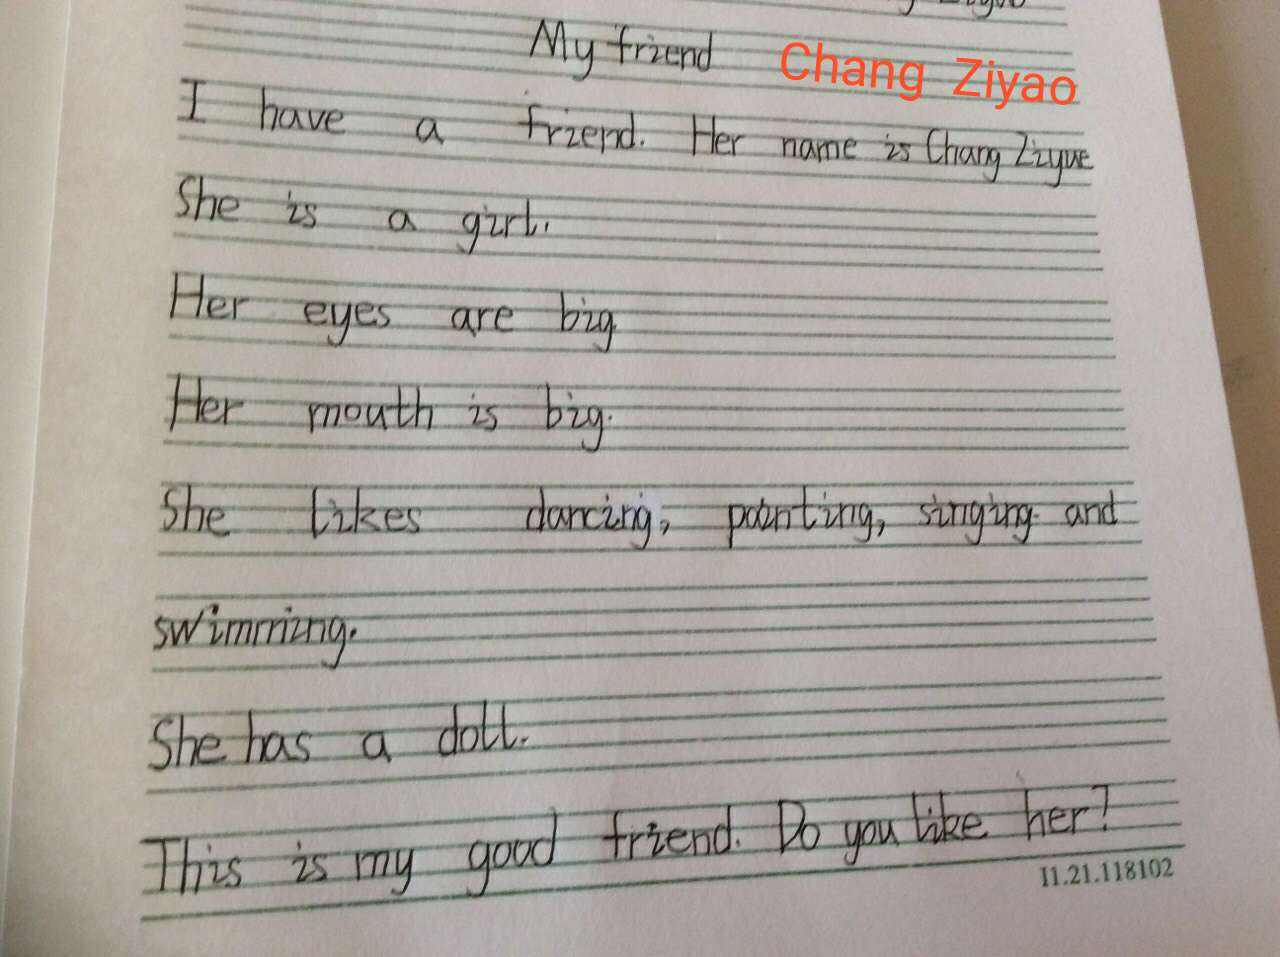 My friend Chang Ziyao
I have a friend. Her name is Chang Ziyue
She is a girl.
Her eyes are big
Her mouth is big.
She likes dancing, painting, singing and
swimming.
She has a doll.
This is my good friend. Do you like her?
11.21.118102